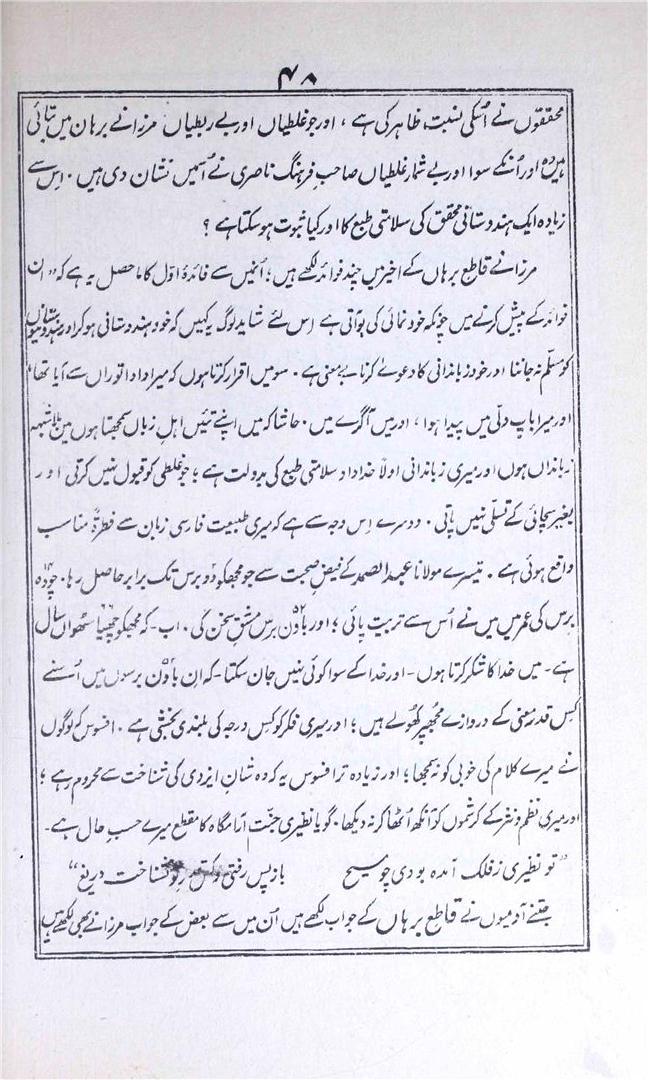 ۴۸
محققوں نے اُسکی نسبت ظاہر کی ہے ، اور جو غلطیاں اور بے ربطیاں مرزا نے برہان میں بتائی
ہیں وہ اور اُنکے سوا اور بے شمار غلطیاں صاحبِ فرہنگ ناصری نے اُسمیں نشان دی ہیں ۔ اِس سے
زیادہ ایک ہندوستانی محقق کی سلامتی طبع کا اور کیا ثبوت ہو سکتا ہے ؟
مرزا نے قاطع برہاں کے اخیر میں چند فوائد لکھے ہیں ؛ اُنمیں سے فائدۂ اوّل کا ماحصل یہ ہے کہ " ان
فوائد کے پیش کرنے میں چونکہ خود نمائی کی بو آتی ہے اِس لئے شاید لوگ یہ کہیں کہ خود ہندوستانی ہو کر اور ہندوستانیوں
کو مسلّم نہ جاننا اور خود زباندانی کا دعوےٰ کرنا بے معنی ہے ۔ سو میں اقرار کرتا ہوں کہ میرا دادا توراں سے آیا تھا
اور میرا باپ دلّی میں پیدا ہوا ، اور میں آگرے میں ۔ حاشا کہ میں اپنے تئیں اہلِ زباں سمجھتا ہوں میں بلاشبہہ
زباندان ہوں اور میری زباندانی اولاً خداداد سلامتی طبع کی بدولت ہے ؛ جو غلطی کو قبول نہیں کرتی اور
بغیر سچائی کے تسلّی نہیں پاتی ۔ دوسرے اِس وجہ سے ہے کہ میری طبیعت فارسی زبان سے فطرۃً مناسب
واقع ہوئی ہے ۔ تیسرے مولانا عبد الصمد کے فیضِ صحبت سے جو مجھکو دو برس تک برابر حاصل رہا ۔ چودہ
برس کی عمر میں میں نے اُس سے تربیت پائی ؛ اور باون ۵۲ برس مشقِ سخن کی ۔ اب ۔ کہ مجھکو چھیاسٹھواں ۶۶ سال
ہے ۔ میں خدا کا شکر کرتا ہوں ۔ اور خدا کے سوا کوئی نہیں جان سکتا ۔ کہ اِن باون ۵۲ برسوں میں اُسنے
کِس قدر معنی کے دروازے مجھپر کھولے ہیں ؛ اور میری فکر کو کِس درجہ کی بلندی بخشی ہے ۔ افسوس کہ لوگوں
نے میرے کلام کی خوبی کو نہ سمجھا ؛ اور زیادہ تر افسوس یہ کہ وہ شانِ ایزدی کی شناخت سے محروم رہے ؛
اور میری نظم و نثر کے کرشموں کو آنکھ اُٹھا کر نہ دیکھا ۔ گویا نظیری جنّت آرامگاہ کا مقطع میرے حسبِ حال ہے ۔
" تو نظیری ز فلک آمدہ بودی چو مسیح باز پس رفتی و کس قدرِ تو نشناخت دریغ "
جتنے آدمیوں نے قاطع برہاں کے جواب لکھے ہیں اُن میں سے بعض کے جواب مرزا نے بھی لکھے ہیں